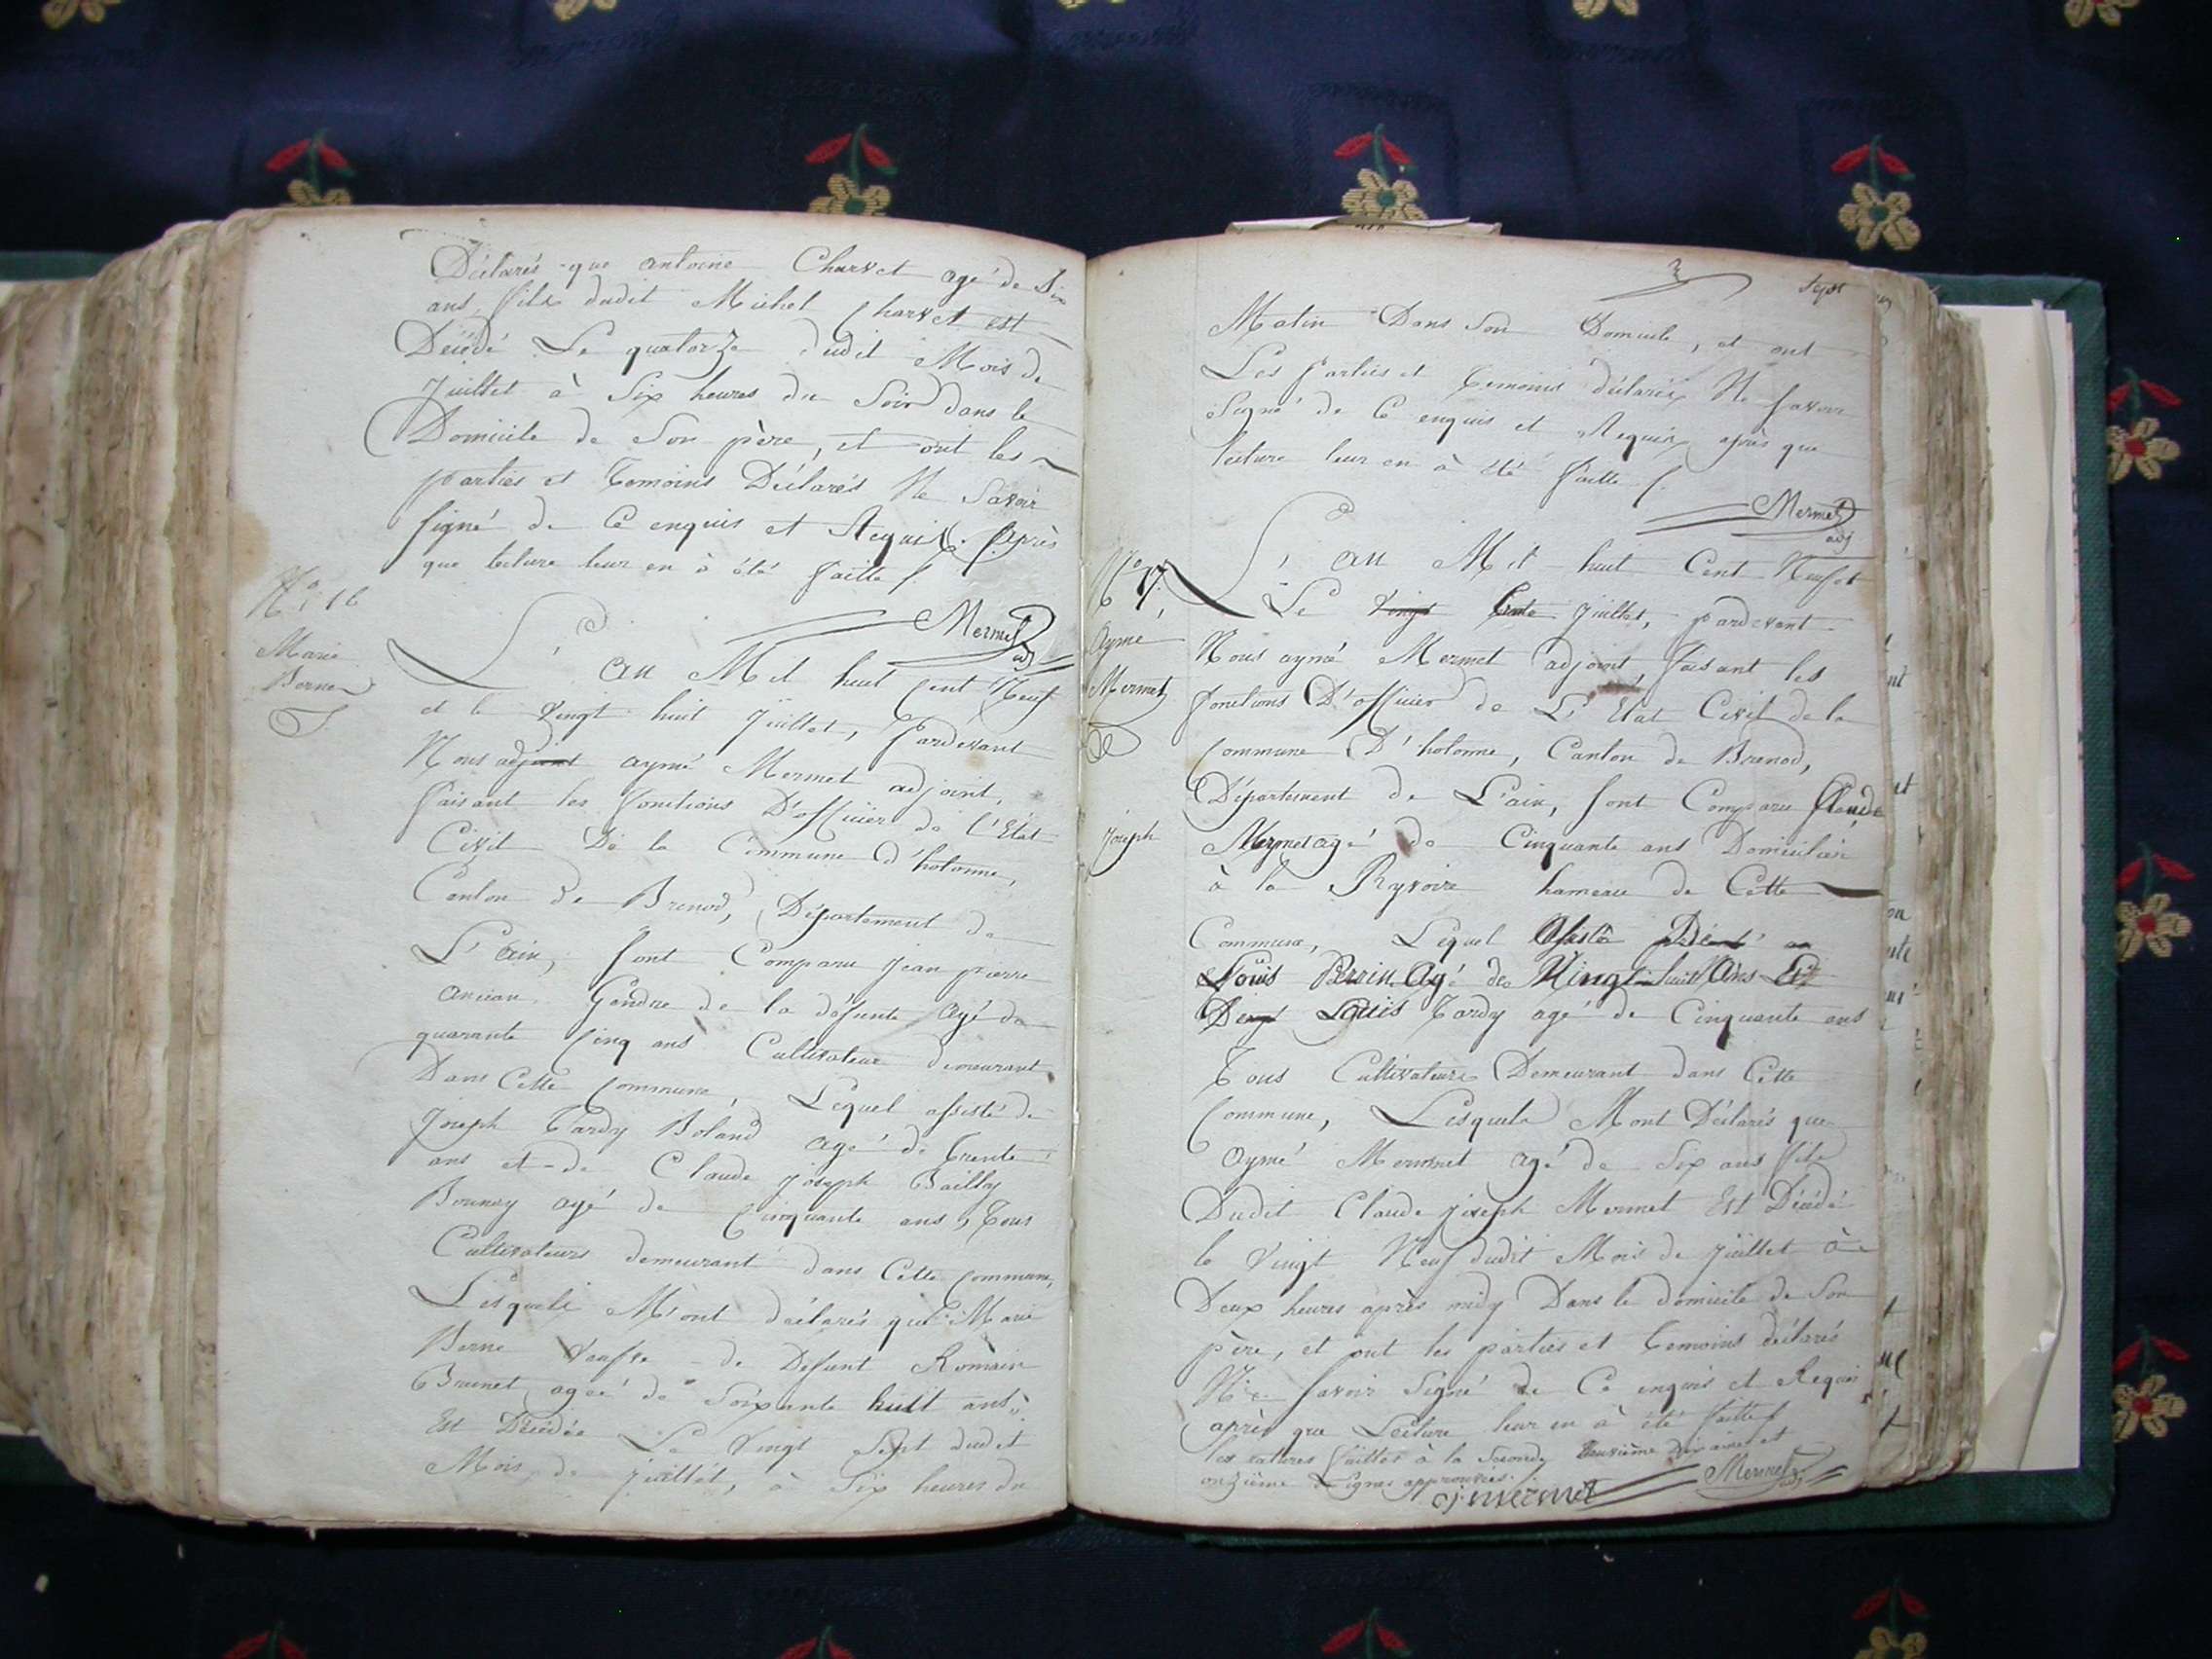 Déclarés que antoine Charvet agé de Six
ans, fils dudit Michel Charvet est
Décédé Le quatorze dudit Mois de
Juillet à Six heures du Soir dans le
Domicile de Son père, et ont les
parties et Temoins Déclarés Ne Savoir
Signé de Ce enquis et Requis. Après
que lecture leur en à été faitte /.
Mermet
adj
No. 16
Marie
Berne
L'an Mil huit Cent Neuf
et le Vingt huit Juillet, Pardevant
Nous adjoint aymé Mermet adjoint,
faisant les fonctions D'officier de l'Etat
Civil De la Commune d'hotonne,
Canton de Brenod, Département de
L'ain, Sont Comparu Jean pierre
ancian Gendre de la défunte Agé de
quarante Cinq ans Cultivateur demeurant
Dans Cette Commune, Lequel assisté de
Joseph Tardy Boland agé de Trente
ans et de Claude Joseph Bailly
Bounay agé de Cinquante ans, Tous
Cultivateurs demeurant dans Cette Commune,
Lesquels M'ont déclarés que Marie
Berne Veufve de Defunt Romain
Brunet, ageé de Soixante huit ans,
Est Décédée Le Vingt Sept dudit
Mois de Juillet, à Six heures du
Sept
Matin Dans Son Domicile, et ont
Les Parties et Temoins déclarés Ne Savoir
Signé de Ce enquis et Requis, après que
lecture leur en à été faitte /.
Mermet
adj
No 17
Aymé
Mermet
L'an Mil huit Cent Neuf et
Le Vingt Juillet, pardevant
Nous aymé Mermet adjoint, faisant les
fonctions D'officier de L'Etat Civil de la
Commune D'hotonne, Canton de Brenod,
Département de L'ain, Sont Comparu Claude
Joseph Mermet agé de Cinquante ans Domicilier
à la Ryvoire hameau de Cette
Commune, Lequel Assisté
Louis Perrin Agé de Vingt huit Ans Et
Louis Tardy agé de Cinquante ans
Tous Cultivateurs Demeurant dans Cette
Commune, Lesquels Mont Déclarés que
Aymé Mermet agé de Six ans fils
Dudit Claude Joseph Mermet Est Décédé
le Vingt Neuf dudit Mois de Juillet à
Deux heures après midy Dans le domicile de Son
père, et ont les parties et Temoins déclarés
Ne Savoir Signé de Ce enquis et Requis
après que Lecture leur en à été faitte /
les ratures faittes à la Seconde Neuvième dixaine et
onzième Lignes approuvées.
cj. mermet
Mermet